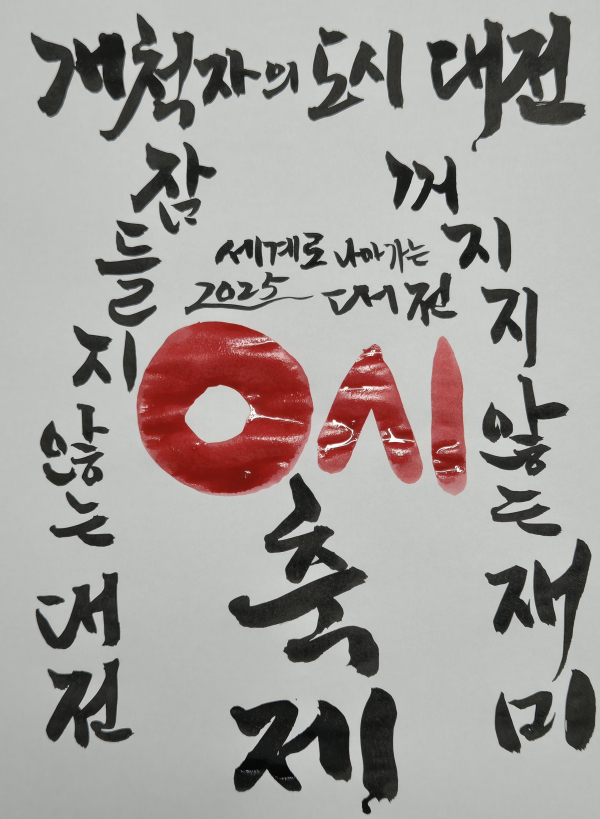 개척자의 도시 대전
잠들지 않는 대전
꺼지지 않는 재미
세계로 나아가는
2025 대전
0시
축제